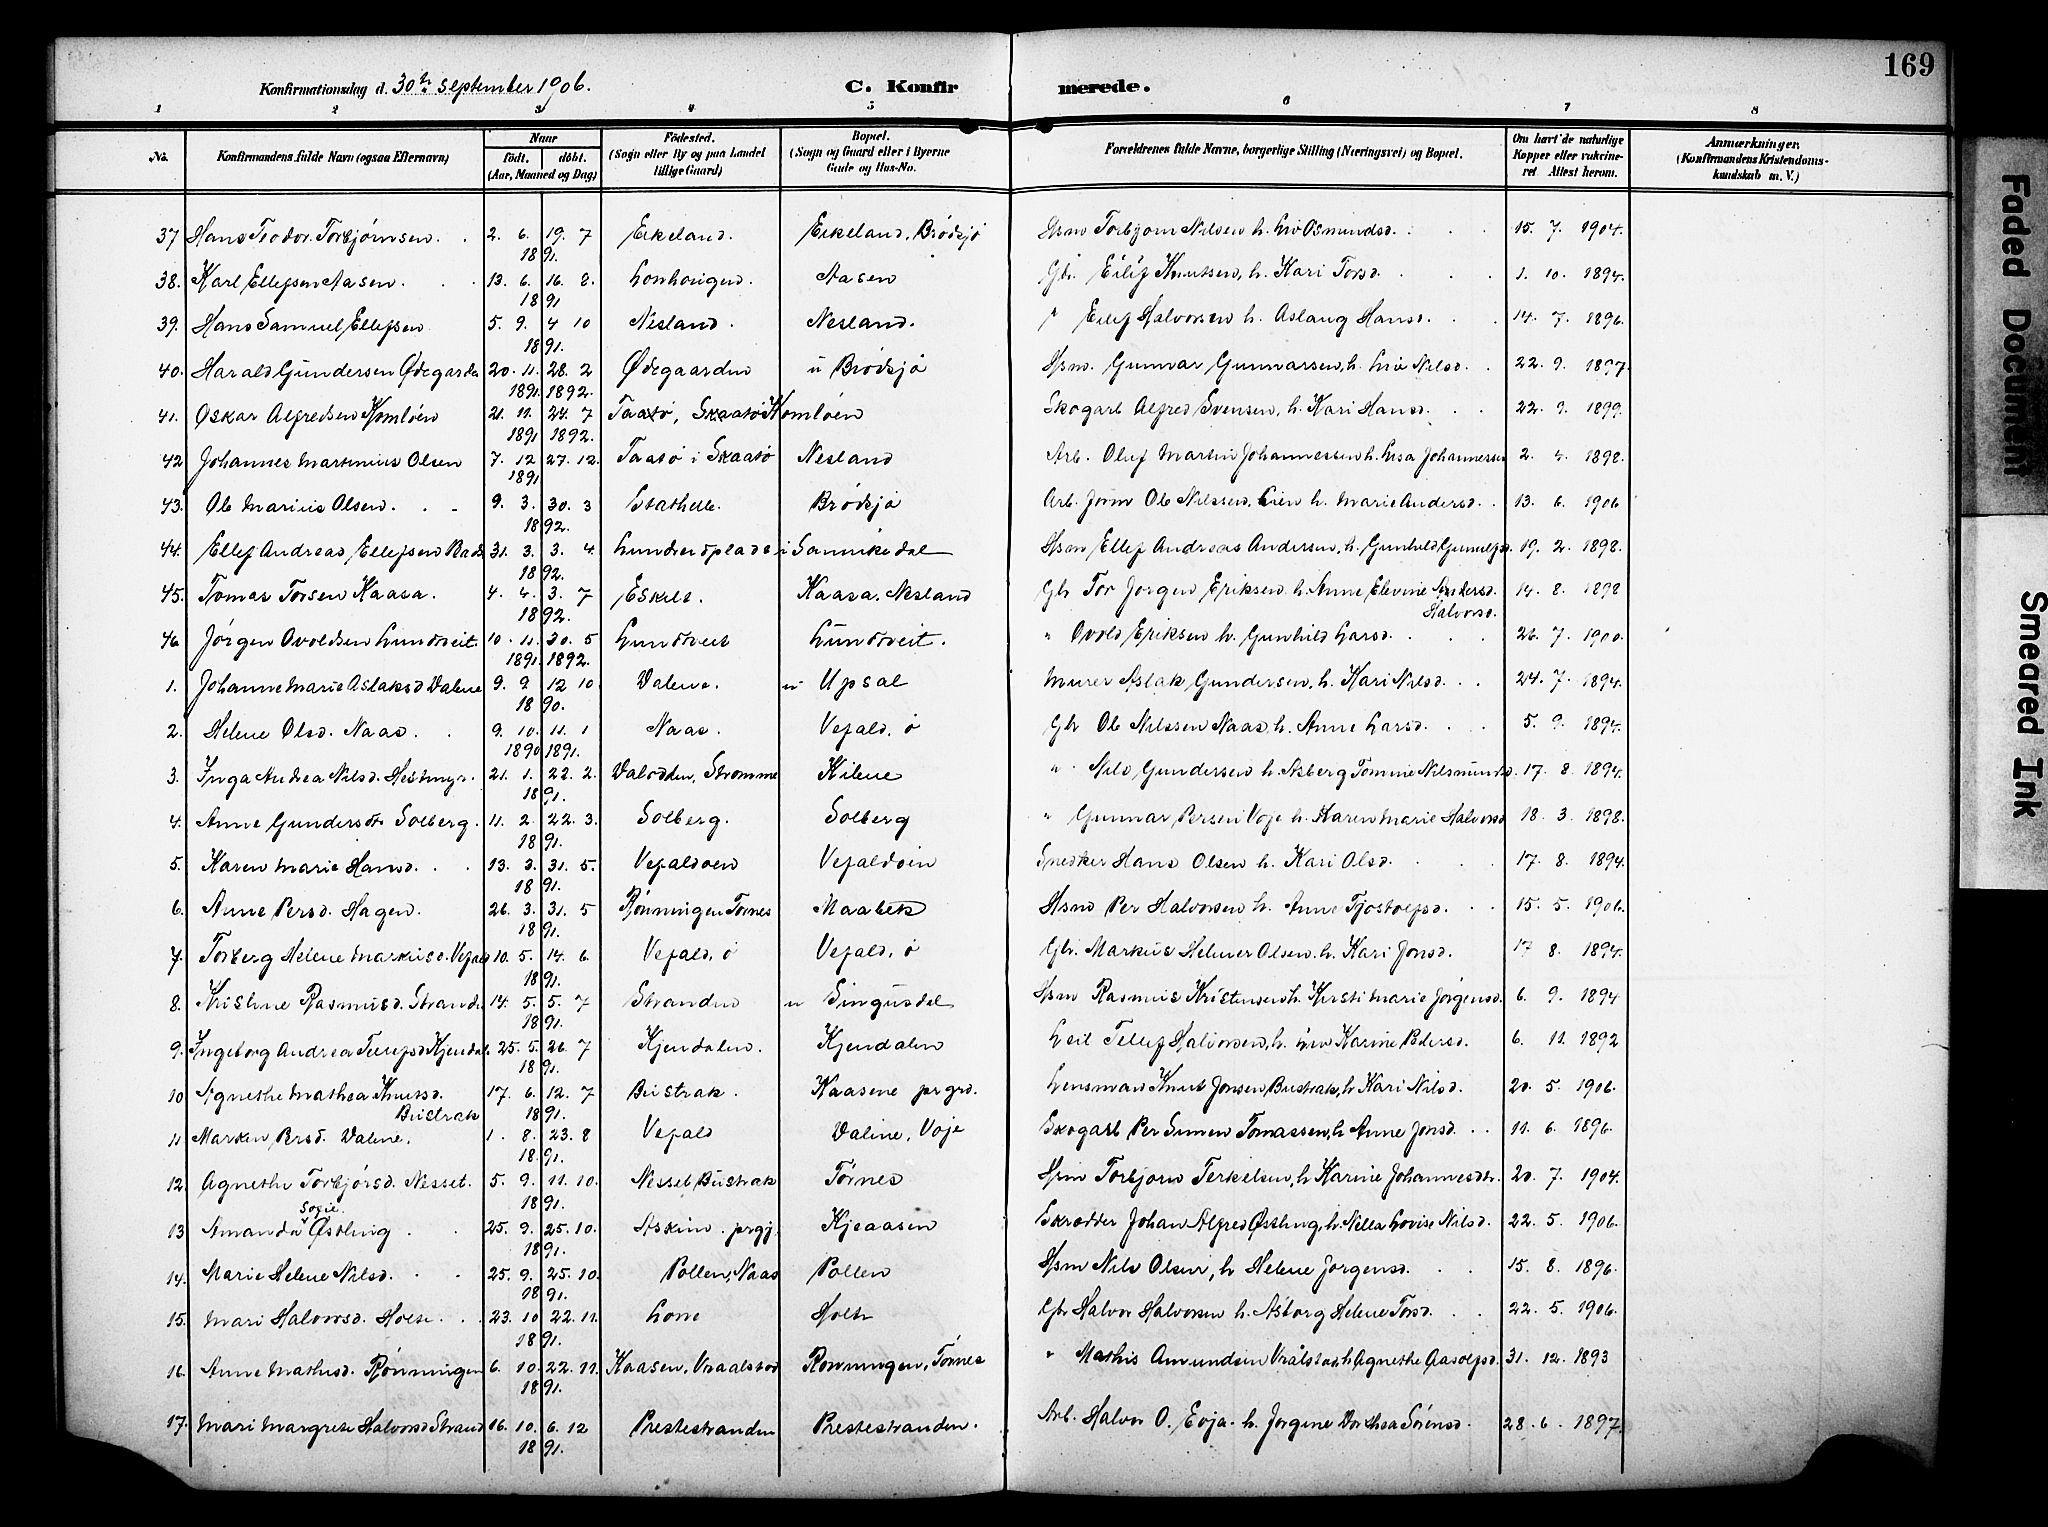 169
Konfirmationsdag d. 30te September 1906. C. Konfirmerede.
1 2 3 4 5 6 7 8
No. Konfirmandens fulde Navn (ogsaa Efternavn) Naar født. døbt. (Aar, Maaned og Dag) Födested. (Sogn eller By og paa Landet tillige Gaard) Bopæl. (Sogn og Gaard eller i Byerne Gade og Hus-No. Forældrenes fulde Navne, borgerlige Stilling (Næringsvei) og Bopæl. Om havt de naturlige Kopper eller vaccineret Attest herom. Anmærkninger. (Konfirmandens Kristendomskundskab m. V.)
37 Hans Teodor Torbjørnsen. 2. 6. 19. 7 Eikeland. Eikeland, Brødsjø Hsm Torbjørn Nilsen h. Liv Osmundsd. 15. 7. 1904.
1891.
38. Karl Ellefsen Aasen. 13. 6. 16. 8. Aasen Gbr. Eilif Knutsen, h. Kari Torsd. 1. 10. 1894.
1891
39. Hans Samuel Ellefsen 5. 9. 4 10 Nesland. Nesland. " Eilef Halvorsen h. Aslaug Hansd. 14. 7. 1896.
1891.
40. Harald Gundersen Ødegaarden 20. 11. 28. 2 Ødegaarden u Brødsjø Hsm. Gunnar Gunnarsen, h. Liv Nilsd. 22. 9. 1897.
1891. 1892.
41. Oskar Alfredsen Homløen 21. 11. 24. 7 Taatø, Skaatø Homløen Skogarb Alfred Svensen, h. Kari Hansd. 22. 9. 1899.
1891 1892.
42 Johannes Martinius Olsen 7. 12 27. 12. Taatø i Skaatø Nesland Arb. Oluf Martin Johannessen h. Lisa Johannessen 2. 4. 1898.
1891
43. Ole Marius Olsen. 9. 3. 30. 3 Stathelle. Brødsjø Arb. Ole Nilssen Lien h. Marie Andersd. 13. 6. 1906
1892.
44. Ellef Andreas Ellefsen 31. 3. 3. 4. i Sannikedal Hsm Ellef Andreas Andersen, h. Gunhild 19. 2. 1898.
1892.
45. Tomas Torsen Kaasa. 4. 4. 3. 7 Eskilt. Kaasa, Nesland Gbr Tor Jørgen Eriksen h. Anne Elevine 14. 8. 1898
1892. Halvorsd.
46. Jørgen Ovoldsen Lundtveit. 10. 11. 30. 5 Lundtveit Lundtveit. " Ovold Eriksen h. Gunhild Larsd. 26. 7. 1900.
1891. 1892.
1. Johanne Marie Aslaksd Valene 9. 9. 12 10. Valene. u Upsal Murer Aslak Gundersen, h. Kari Nilsd. 24. 7. 1894.
1890.
2. Helene Olsd. Naas. 9. 10. 11. 1 Naas. Vefald. ø Gbr Ole Nilssen Naas, h. Anne Larsd. 5. 9. 1894.
1890 1891.
3. Inga Andrea Nilsd. Hestmyr. 21. 1. 22. 2. Valodden, Strømme Kilene " Nils Gundersen h. Asberg Tomine Nilsmundsd. 17. 8. 1894.
1891.
4. Anne Gundersdtr Solberg. 11. 2. 22. 3. Solberg. Solberg " Gunnar Persen Voje h. Karen Marie Halvorsd 18. 3. 1898.
1891.
5. Karen Marie Hansd. 13. 3. 31. 5. Vefaldøen Vefaldøen Snedker Hans Olsen h. Kari Olsd. 17. 8. 1894.
1891.
6. Anne Persd. Hagen. 26. 3. 31. 5 Rønningen Tørnes Maabek Hsm Per Halvorsen h. Anne Tjostolfsd. 15. 5. 1906.
1891.
7. Torberg Helene Markusd. Vefald 10. 5. 14. 6 Vefald, ø Vefald, ø Gbr. Markus Helmer Olsen. h. Kari Jonsd. 17 8. 1894.
1891.
8. Kristine Rasmusd. Stranden 14. 5. 5. 7 Stranden u Singusdal Hsm Rasmus Kristensen h. Kirsti Marie Jørgensd. 6. 9. 1894
1891.
9. Ingeborg Andrea Tellefsd Kjendalen 25. 5. 26. 7 Kjendalen. Kjendalen Leil Tellef Halvorsen, h. Liv Karine Pedersd. 6. 11. 1892
1891.
10 Agnethe Mathea Knutsd. 17. 6. 12. 7 Bustrak. Kaasene prgrd. Lensmand Knut Jonsen, Bustrak, h Kari Nilsd. 20. 5. 1906.
Bustrak 1891.
11 Marken Persd. Valene. 1. 8. 23. 8 Vefald Valine, Voje Skogarb Per Simen Tomassen, h Anne Jonsd. 11. 6. 1896.
1891.
12. Agnethe Torbjørsd. Nesset. 5. 9. 11. 10. Nesset Bustrak Tørnes Hsm Torbjørn Terkelsen, h Karine Johannesdtr. 20. 7. 1904.
Sogie. 1891.
13 Amanda Østling 25. 9. 25. 10. Askim prgj. Kjeaasen Skrædder Johan Alfred Østling, h. Nilla Lovise Nilsd. 22. 5. 1906.
1891.
14. Marie Helene Nilsd. 25. 9. 25. 10. Pollen, Naas Pollen Hsm Nils Olsen, h Helene Jørgensd. 15. 8. 1896.
1891.
15. Mari Halvorsd. Holte. 23. 10 22. 11. Lone Holte Gbr Halvor Halvorsen h. Asborg Helene Torsd. 22. 5. 1906.
1891.
16. Anne Mathisd. Rønningen 6. 10. 22. 11. Kaasen, Vraalstad Rønningen, Tørnes " Mathis Amundsen Vrålstad h Agnethe Aasolfsd. 31. 12. 1893
1891.
17. Mari Margrete Halvorsd Strand 16. 10. 6. 12 Prestestranden Prestestranden. Arb. Halvor O. Evja h. Jørgine Dorthea Sørensd. 28. 6. 1897.
1891.
Faded Document
Smeared Ink